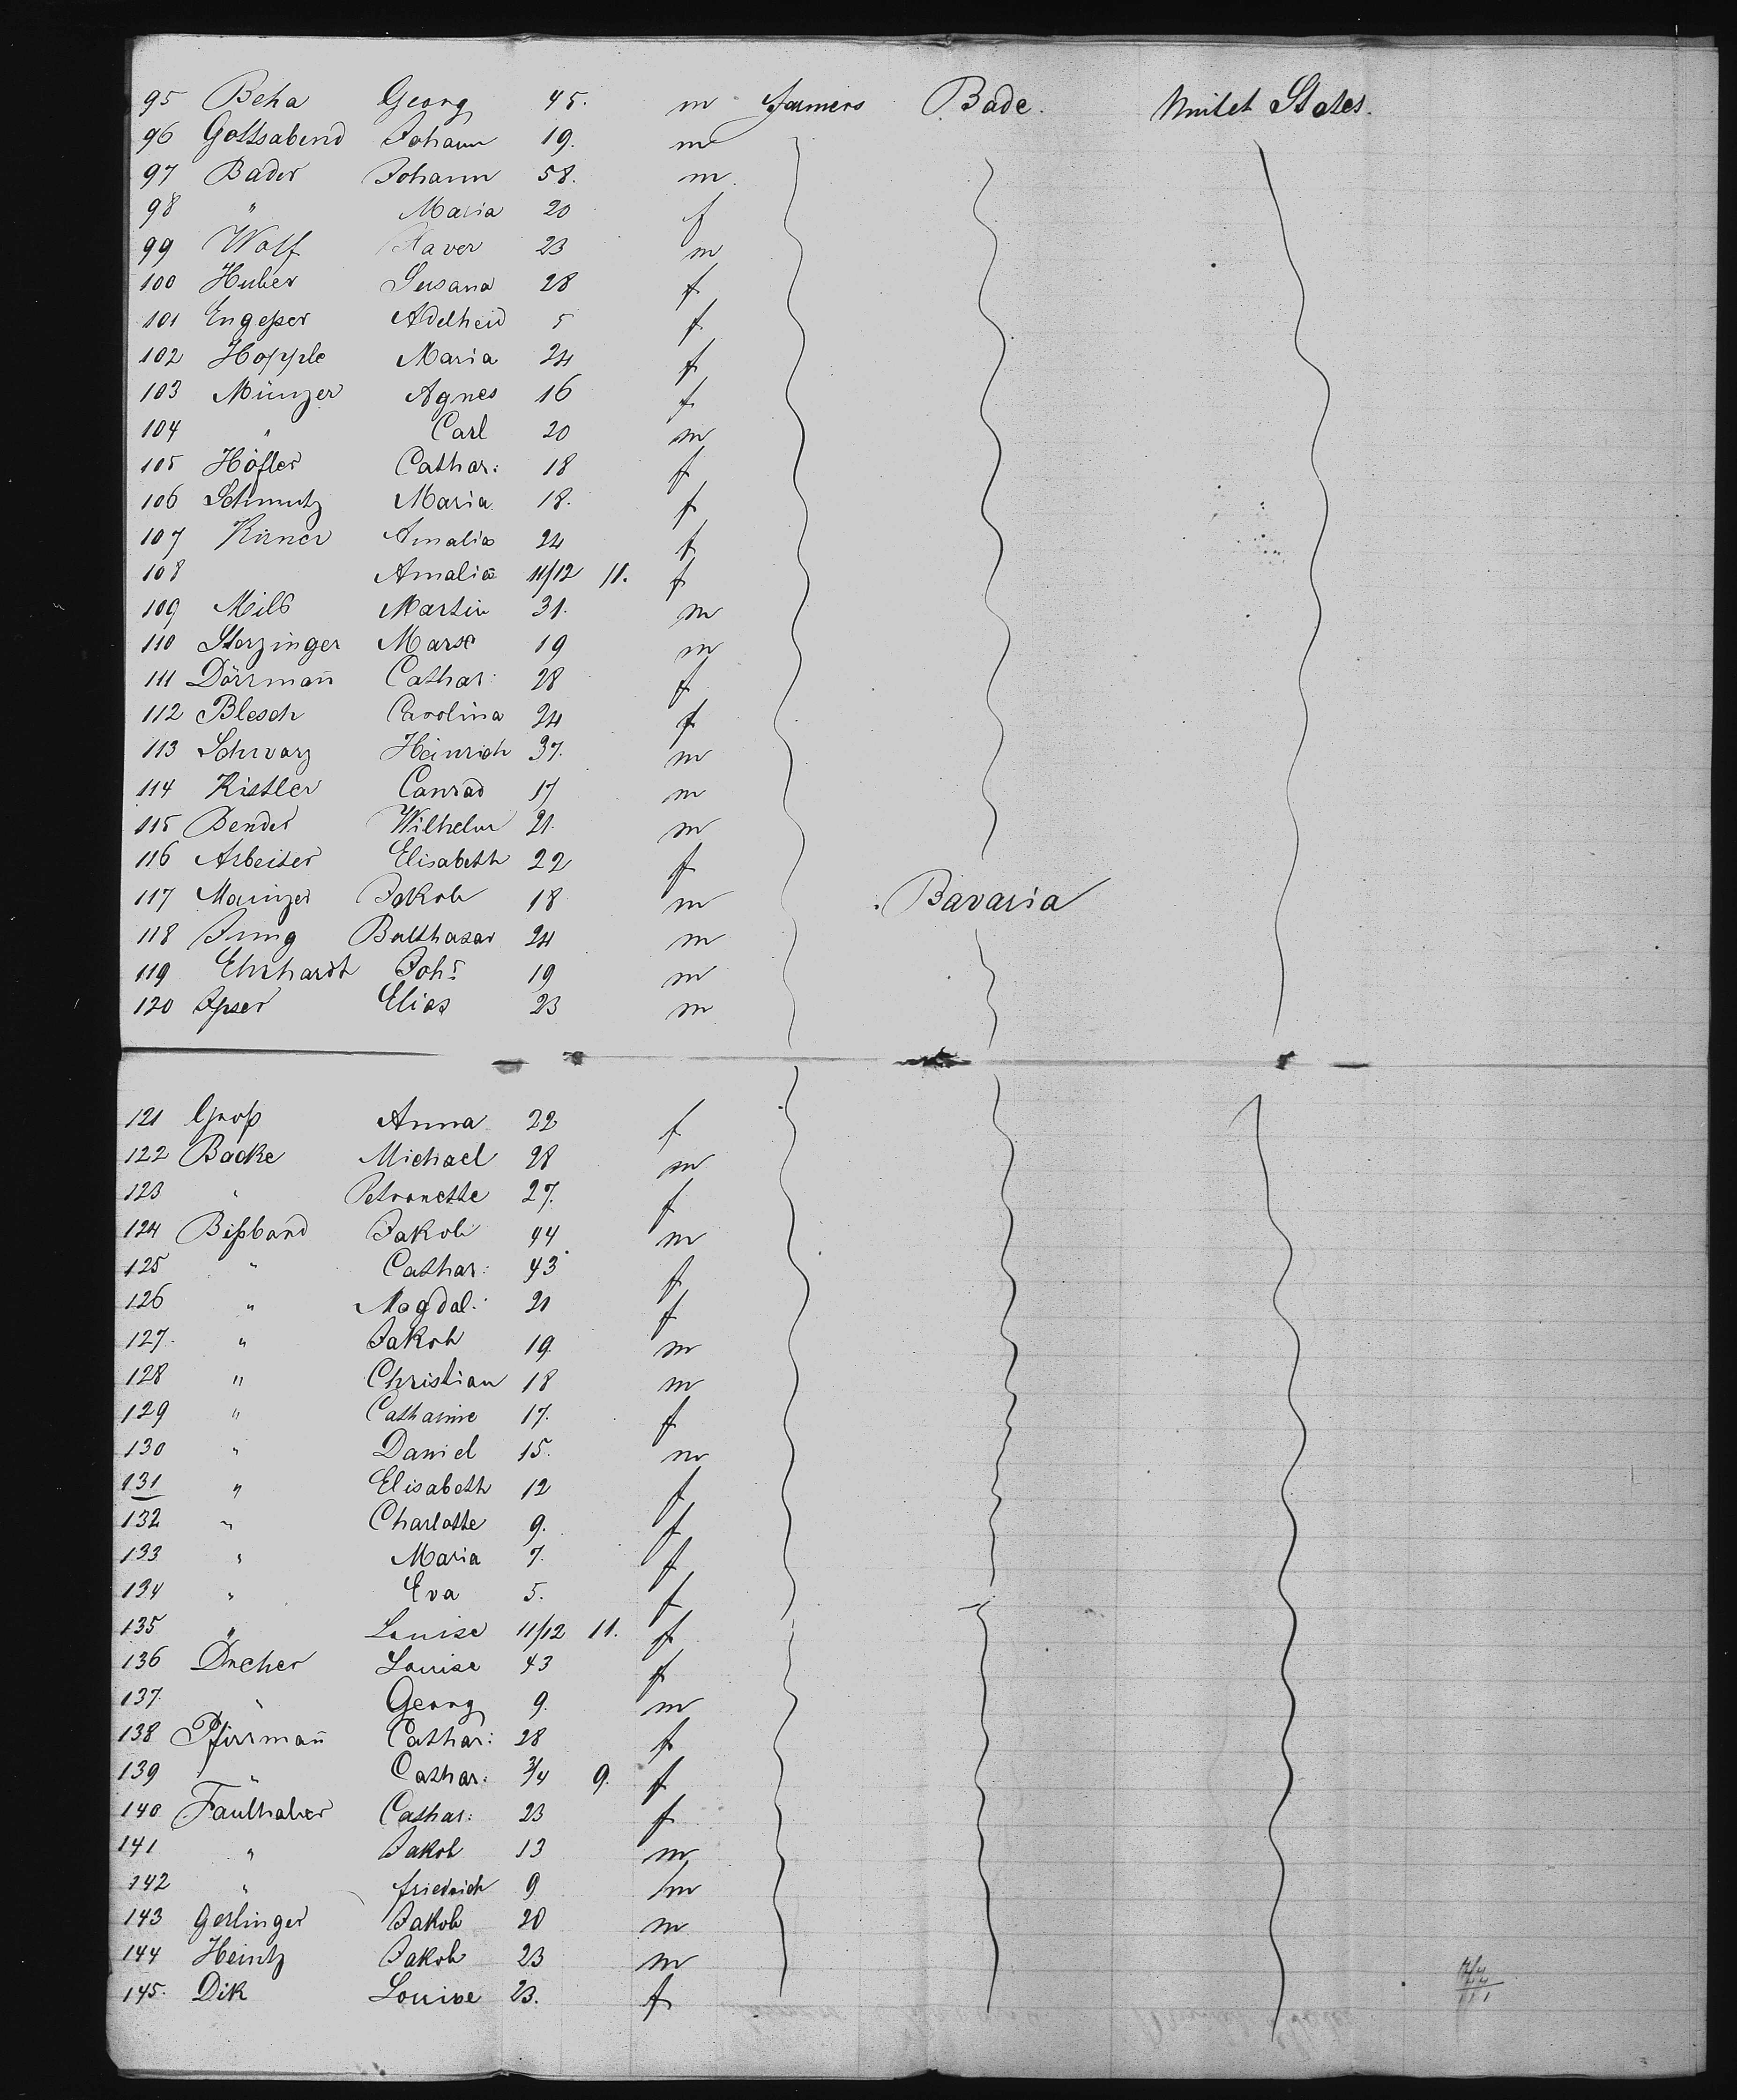 95 Beha Georg 45. m farmers Bade. Unitet States.
96 Gottsabend Johann 19. m
97 Bader Johann 58. m.
98 " Maria 20 f
99 Wolf Xaver 23 m
100 Huber Susana 28 f
101 Engeßer Adelheid 5 f
102 Hopple Maria 24 f
103 Münzer Agnes 16 f
104 " Carl 20 m
105 Höfler Cathar: 18 f
106 Schmutz Maria 18. f
107 Kirner Amalia 24 f
108 Amalia 11/12 11. f
109 Milb Martin 31. m
110 Sterzinger Marx 19 m
111 Dörrmañ Cathar: 28 f
112 Blesch Carolina 24 f
113 Schwarz Heinrich 37. m
114 Kistler Conrad 17 m
115 Bender Wilhelm 21. m
116 Arbeiter Elisabeth 22 f
117 Mainzer Jakob 18 m Bavaria
118 Jung Balthasar 24 m
119 Ehrhardt Johs 19 m
120 Elias 23 m
121 Groß Anna 22 f
122 Backe Michael 28 m
123 " Petronette 27. f
124 Bißband Jakob 44 m
125 " Cathar: 43 f
126 " Magdal: 21 f
127. " Jakob 19 m
128 " Christian 18 m
129 " Catharine 17. f
130 " Daniel 15. m
131 " Elisabeth 12 f
132 " Charlotte 9. f
133 " Maria 7. f
134 " Eva 5. f
135 " Louise 11/12 11. f
136 Drcher Louise 43 f
137. " Georg 9. m
138 Pfirrmañ Cathar: 28 f
139 " Cathar: 3/4 9. f
140 Faulhaber Cathar: 23 f
141 " Jakob 13 m
142 " friedrich 9 m
143 Gerlinger Jakob 20 m
144 Heintz Jakob 23 m
145. Dik Louise 23. f